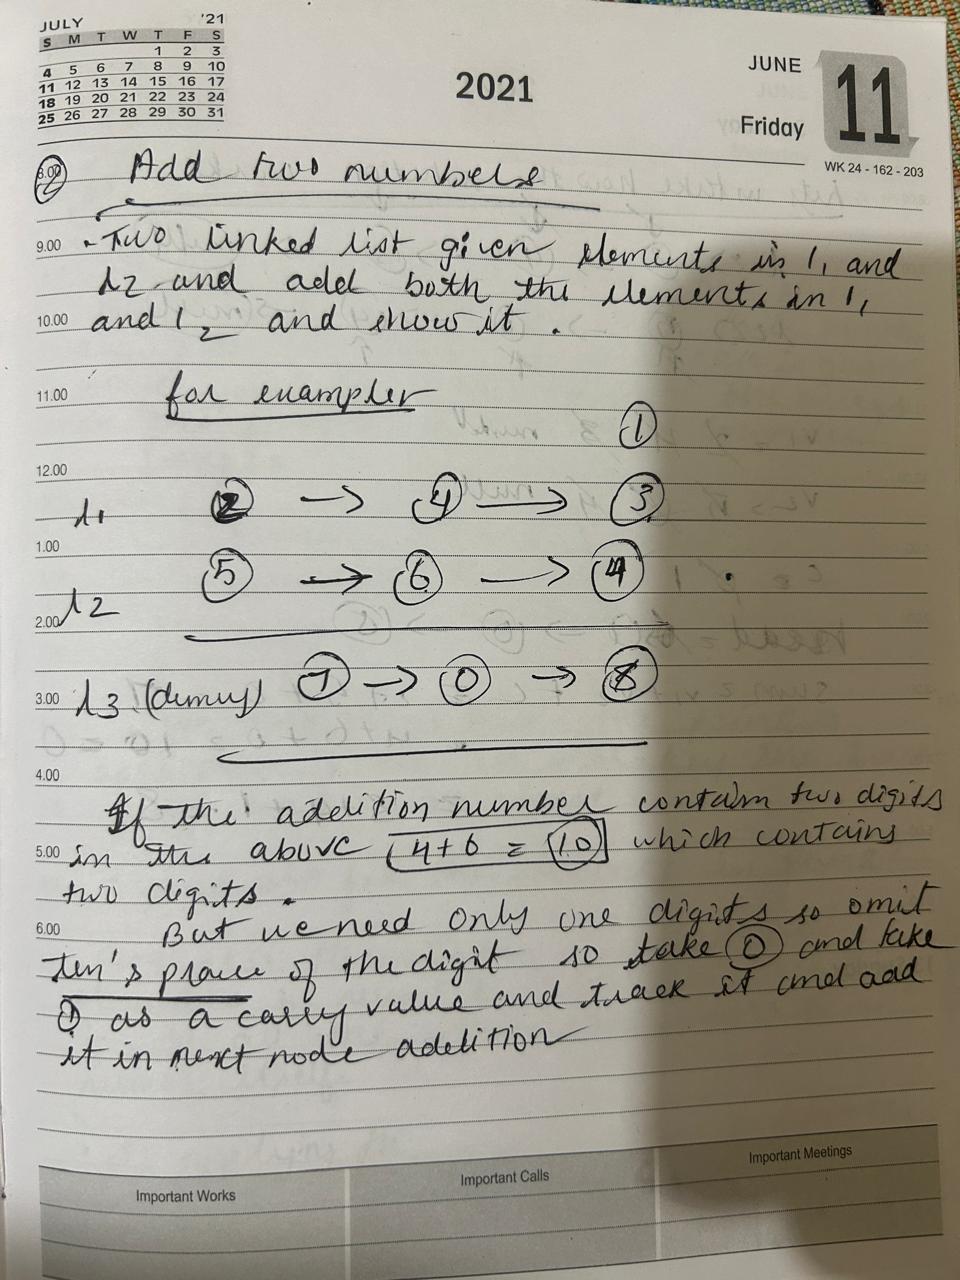 JULY '21
S M T W T F S
1 2 3
4 5 6 7 8 9 10
11 12 13 14 15 16 17
18 19 20 21 22 23 24
25 26 27 28 29 30 31
2021
JUNE 11
Friday
WK 24 - 162 - 203
8.00 2 Add two numbers
9.00 . Two linked list given elements in l1 and
l2 and add both the elements in l1
10.00 and l2 and show it .
11.00 for example
1
12.00
l1 2 → 4 → 3
1.00
l2 5 → 6 → 4
2.00
3.00 l3 (dumy) 7 → 0 → 8
4.00
If the addition number contain two digits
5.00 in the above 4+6 = 10 which contains
two digits .
6.00 But we need only one digits so omit
Ten's place of the digit so take 0 and take
1 as a carry value and track it and add
it in next node addition
Important Works
Important Calls
Important Meetings